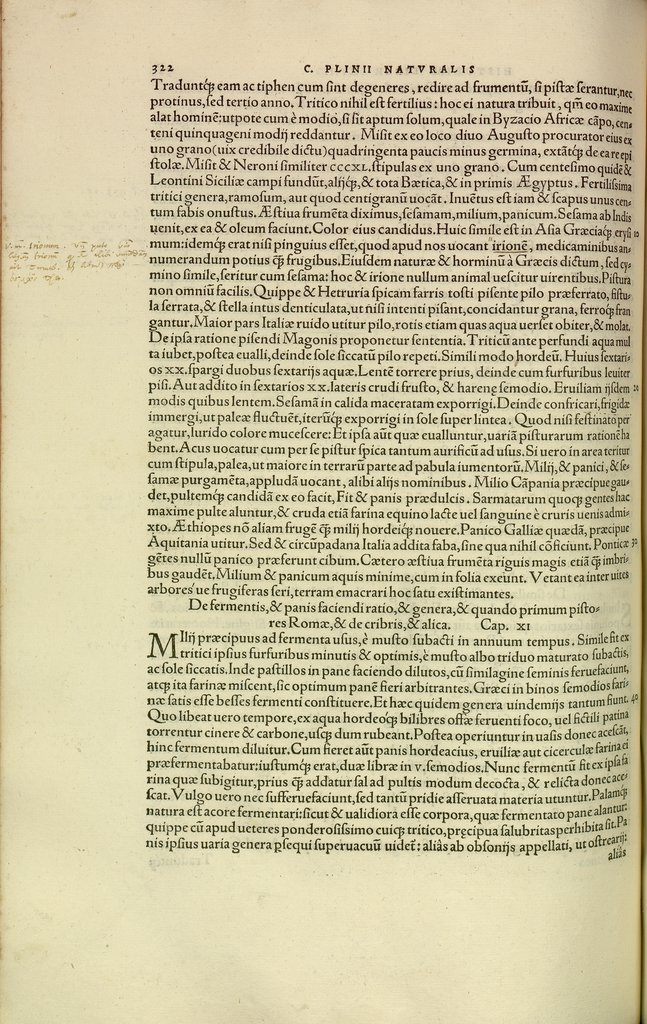 322 C. PLINII NATVRALIS
Traduntq́; eam ac tiphen cum sint degeneres, redire ad frumentū, si pistæ serantur, nec
protinus, sed tertio anno. Tritico nihil est fertilius: hoc ei natura tribuit, qm̄ eo maxime
alat hominē: utpote cum è modio, si sit aptum solum, quale in Byzacio Africæ cāpo, cen⸗
teni quinquageni modij reddantur. Misit ex eo loco diuo Augusto procurator eius ex
uno grano (uix credibile dictu) quadringenta paucis minus germina, extātq́; de ea re epi
stolæ. Misit & Neroni similiter CCCXL. stipulas ex uno grano. Cum centesimo quidē &
Leontini Siciliæ campi fundūt, alijq́;, & tota Bætica, & in primis Ægyptus. Fertilissima
tritici genera, ramosum, aut quod centigranū uocāt. Inuētus est iam & scapus unus cen⸗
tum fabis onustus. Æstiua frumēta diximus, sesamam, milium, panicum. Sesama ab Indis
uenit, ex ea & oleum faciunt. Color eius candidus. Huic simile est in Asia Græciaq́; erysi 10
mum: idemq́; erat nisi pinguius esset, quod apud nos uocant irionē, medicaminibus an⸗
numerandum potius q̄ frugibus. Eiusdem naturæ & horminū à Græcis dictum, sed cy⸗
mino simile, seritur cum sesama: hoc & irione nullum animal uescitur uirentibus. Pistura
non omniū facilis. Quippe & Hetruria spicam farris tosti pisente pilo præferrato, fistu⸗
la serrata, & stella intus denticulata, ut nisi intenti pisant, concidantur grana, ferroq́; fran
gantur. Maior pars Italiæ ruido utitur pilo, rotis etiam quas aqua uerset obiter, & molat.
De ipsa ratione pisendi Magonis proponetur sententia. Triticū ante perfundi aqua mul
ta iubet, postea eualli, deinde sole siccatū pilo repeti. Simili modo hordeū. Huius sextari⸗
os XX. spargi duobus sextarijs aquæ. Lentē torrere prius, deinde cum furfuribus leuiter
pisi. Aut addito in sextarios XX. lateris crudi frusto, & harenę semodio. Eruiliam ijsdem 20
modis quibus lentem. Sesamā in calida maceratam exporrigi. Deinde confricari, frigidæ
immergi, ut paleæ fluctuēt, iterūq́; exporrigi in sole super lintea. Quod nisi festinato per
agatur, lurido colore mucescere: Et ipsa aūt quæ eualluntur, uariā pisturarum rationē ha
bent. Acus uocatur cum per se pistur spica tantum aurificū ad usus. Si uero in area teritur
cum stipula, palea, ut maiore in terrarū parte ad pabula iumentorū. Milij, & panici, & se⸗
samæ purgamēta, appludā uocant, alibi alijs nominibus. Milio Cāpania præcipue gau⸗
det, pultemq́; candidā ex eo facit, Fit & panis prædulcis. Sarmatarum quoq́; gentes hac
maxime pulte aluntur, & cruda etiā farina equino lacte uel sanguine è cruris uenis admi⸗
xto. Æthiopes nō aliam frugē q̄ milij hordeiq́; nouere. Panico Galliæ quædā, præcipue
Aquitania utitur. Sed & circūpadana Italia addita faba, sine qua nihil cōficiunt. Ponticæ 30
gētes nullū panico præferunt cibum. Cætero æstiua frumēta riguis magis etiā q̄ imbri⸗
bus gaudēt. Milium & panicum aquis minime, cum in folia exeunt. Vetant ea inter uites
arbores ue frugiferas seri, terram emacrari hoc satu existimantes.
De fermentis, & panis faciendi ratio, & genera, & quando primum pisto⸗
res Romæ, & de cribris, & alica. Cap. XI
MIlij præcipuus ad fermenta usus, è musto subacti in annuum tempus. Simile fit ex
tritici ipsius furfuribus minutis & optimis, è musto albo triduo maturato subactis,
ac sole siccatis. Inde pastillos in pane faciendo dilutos, cū similagine seminis feruefaciunt,
atq́; ita farinæ miscent, sic optimum panē fieri arbitrantes. Græci in binos semodios fari⸗
næ satis esse besses fermenti constituere. Et hæc quidem genera uindemijs tantum fiunt. 40
Quo libeat uero tempore, ex aqua hordeoq́; bilibres offæ feruenti foco, uel fictili patina
torrentur cinere & carbone, usq́; dum rubeant. Postea operiuntur in uasis donec acescāt,
hinc fermentum diluitur. Cum fieret aūt panis hordeacius, eruiliæ aut cicerculæ farina ei
præfermentabatur: iustumq́; erat, duæ libræ in V. semodios. Nunc fermentū fit ex ipsa fa
rina quæ subigitur, prius q̄ addatur sal ad pultis modum decocta, & relicta donec ace⸗
scat. Vulgo uero nec sufferuefaciunt, sed tantū pridie asseruata materia utuntur. Palamq́;
natura est acore fermentari: sicut & ualidiora esse corpora, quæ fermentato pane alantur:
quippe cū apud ueteres ponderosissimo cuiq́; tritico, pręcipua salubritas perhibita sit. Pa
nis ipsius uaria genera ꝑsequi superuacuū uidet: aliàs ab obsonijs appellati, ut ostrearij:
aliàs